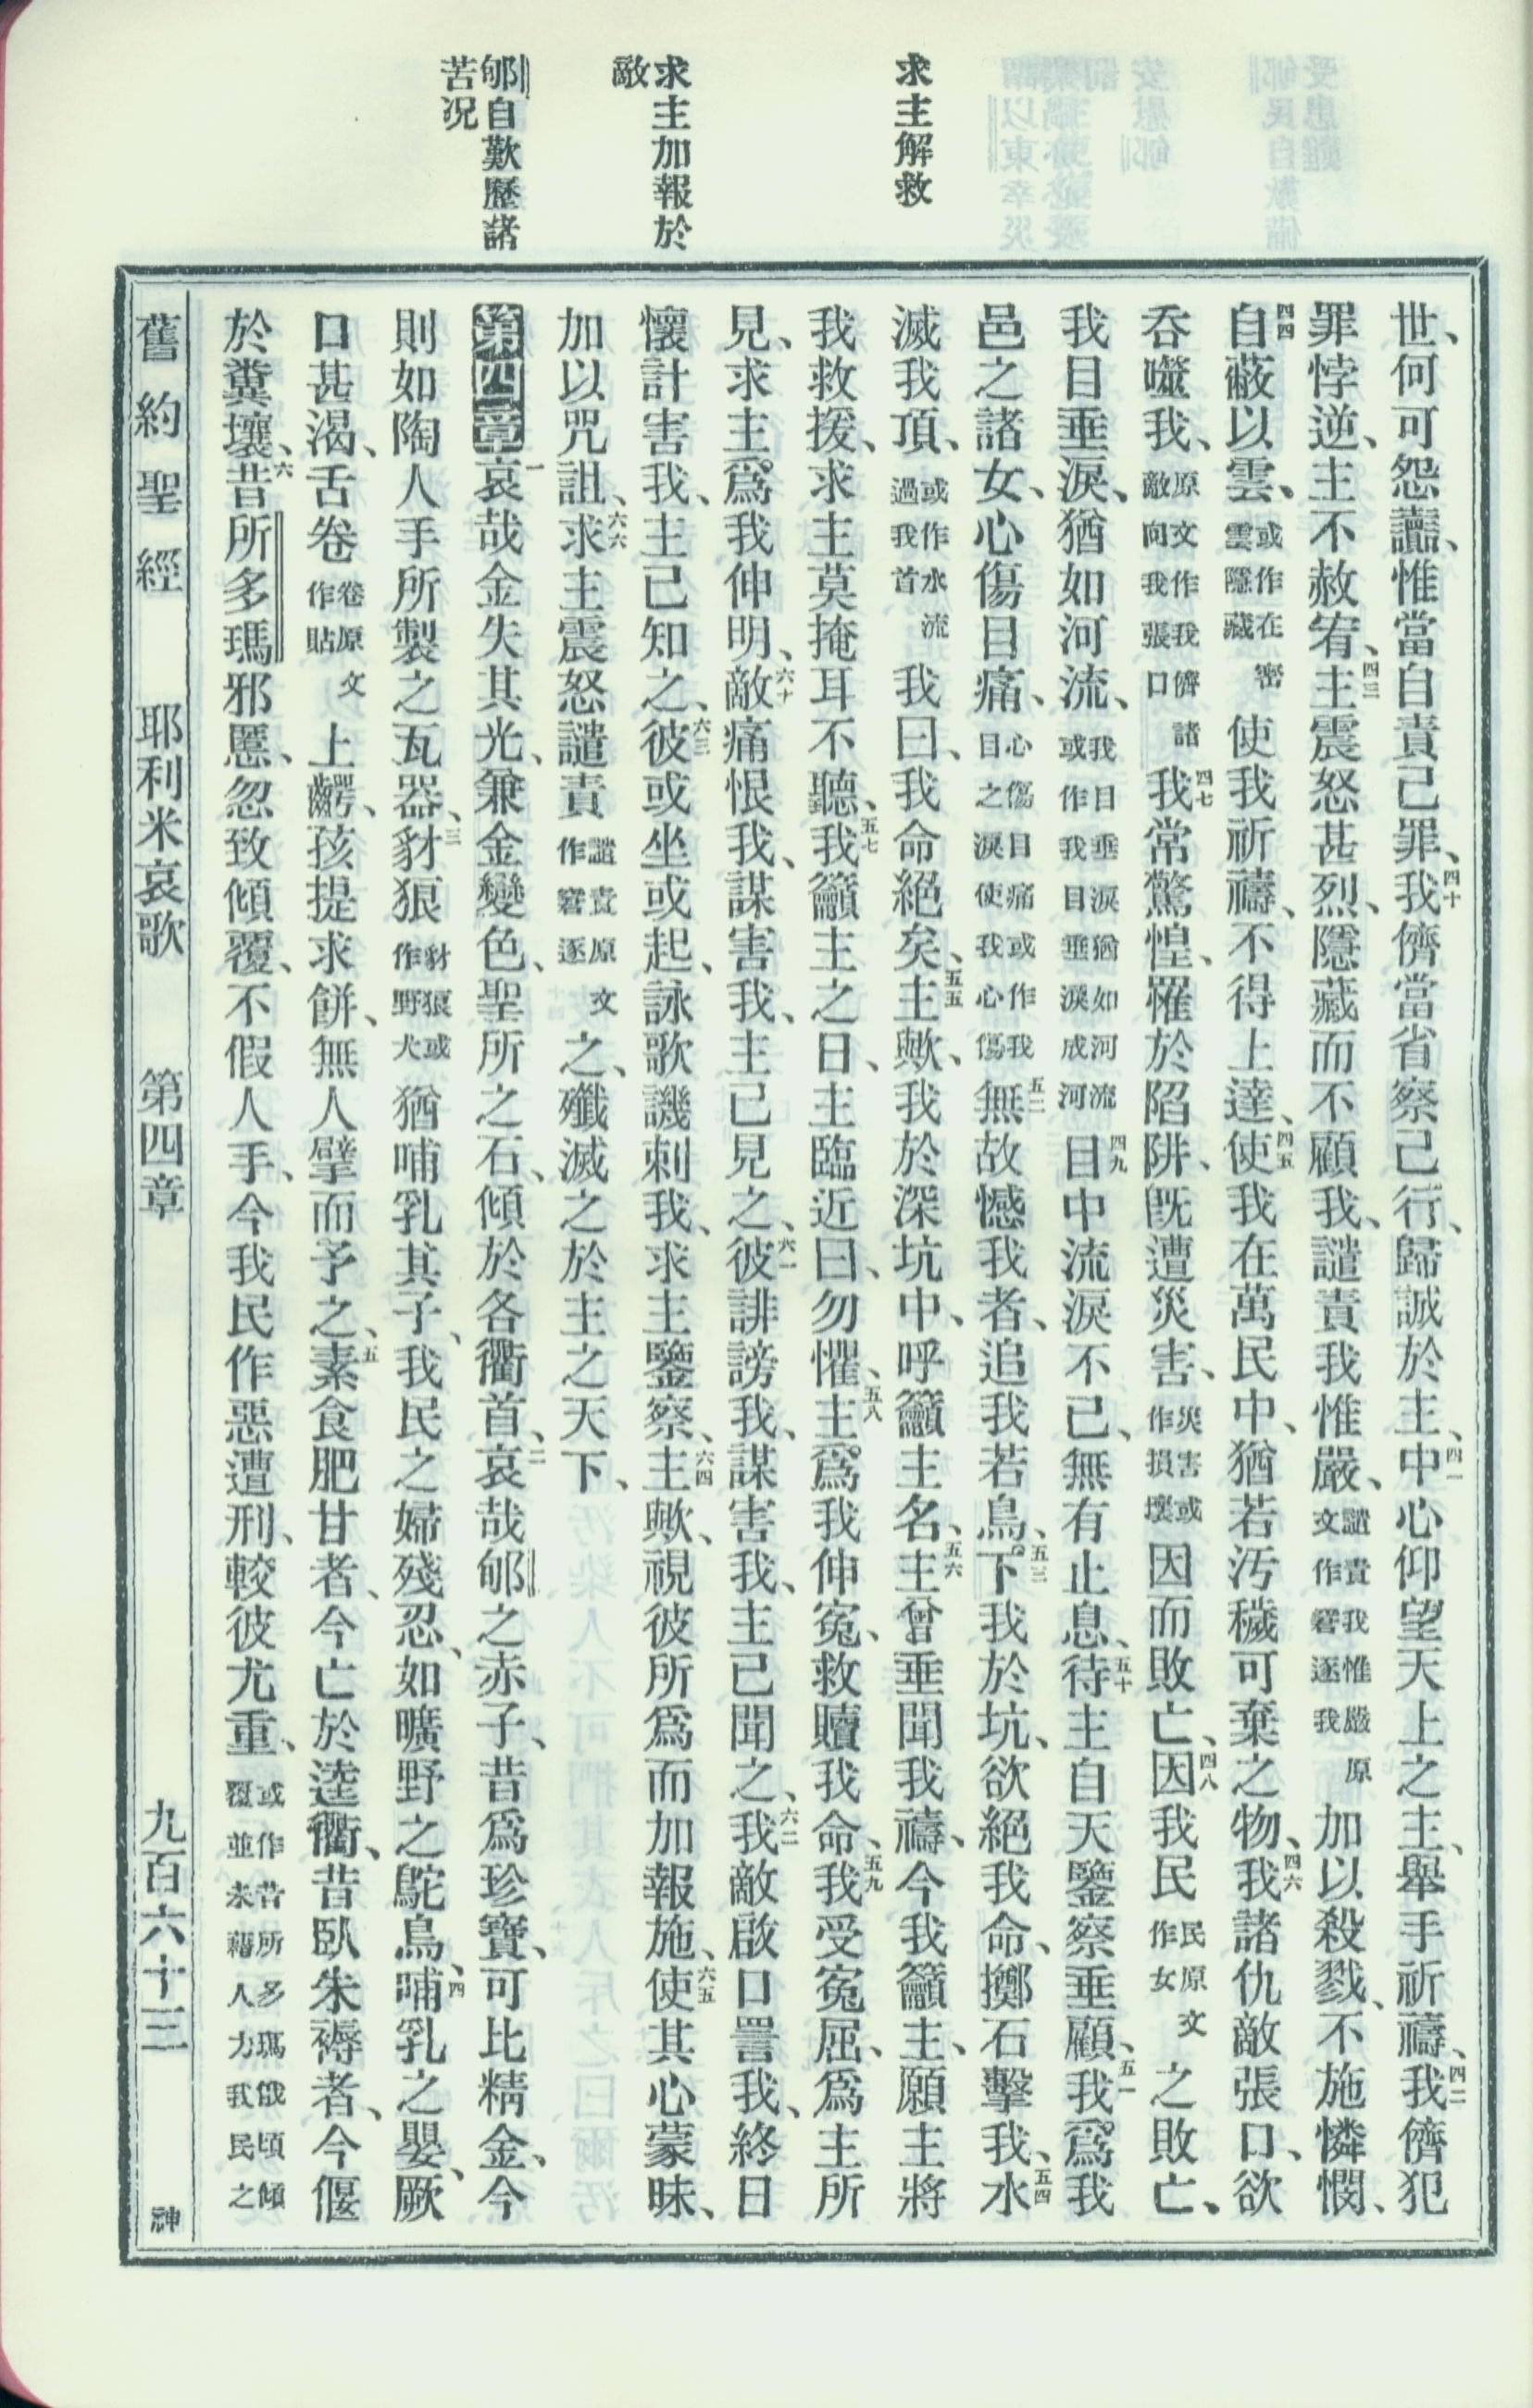 求主解救
求主加報於
敵
郇自歎歷諸
苦況
世、何可怨讟、惟當自責己罪、四十我儕當省察己行、歸誠於主、四一中心仰望天上之主、舉手祈禱、四二我儕犯
罪悖逆、主不赦宥、四三主震怒甚烈、隱藏而不顧我、譴責我惟嚴、譴責我惟嚴原文作窘逐我加以殺戮、不施憐憫、
四四自蔽以雲、或作在密雲隱藏使我祈禱、不得上達、四五使我在萬民中、猶若污穢可棄之物、四六我諸仇敵張口、欲
吞噬我、原文作我儕諸敵向我張口四七我常驚惶、罹於陷阱、旣遭災害、災害或作損壞因而敗亡、四八因我民民原文作女之敗亡、
我目垂淚、猶如河流、我目垂淚猶如河流或作我目垂淚成河四九目中流淚不已、無有止息、五十待主自天鑒察垂顧、五一我爲我
邑之諸女、心傷目痛、心傷目痛或作我目之淚使我心傷五二無故憾我者、追我若鳥、五三下我於坑、欲絕我命、擲石擊我、五四水
滅我頂、或作水流過我首我曰、我命絕矣、五五主歟、我於深坑中、呼籲主名、五六主曾垂聞我禱、今我籲主、願主將
我救援、求主莫掩耳不聽、五七我籲主之日、主臨近曰、勿懼、五八主爲我伸寃、救贖我命、五九我受寃屈、爲主所
見、求主爲我伸明、六十敵痛恨我、謀害我、主已見之、六一彼誹謗我、謀害我、主已聞之、六二我敵啟口詈我、終日
懷計害我、主已知之、六三彼或坐或起、詠歌譏刺我、求主鑒察、六四主歟、視彼所爲而加報施、六五使其心蒙昧、
加以咒詛、六六求主震怒譴責譴責原文作窘逐之、殲滅之於主之天下、
第四章一哀哉金失其光、兼金變色、聖所之石、傾於各衢首、二哀哉郇之赤子、昔爲珍寶、可比精金、今
則如陶人手所製之瓦器、三豺狼豺狼或作野犬猶哺乳其子、我民之婦殘忍、如曠野之鴕鳥、四哺乳之嬰、厥
口甚渴、舌卷卷原文作貼上齶、孩提求餅、無人擘而予之、五素食肥甘者、今亡於逵衢、昔臥朱褥者、今偃
於糞壤、六昔所多瑪邪慝、忽致傾覆、不假人手、今我民作惡遭刑、較彼尤重、或作昔所多瑪俄頃傾覆並未藉人力我民之
舊約聖經　耶利米哀歌　第四章　九百六十三　神